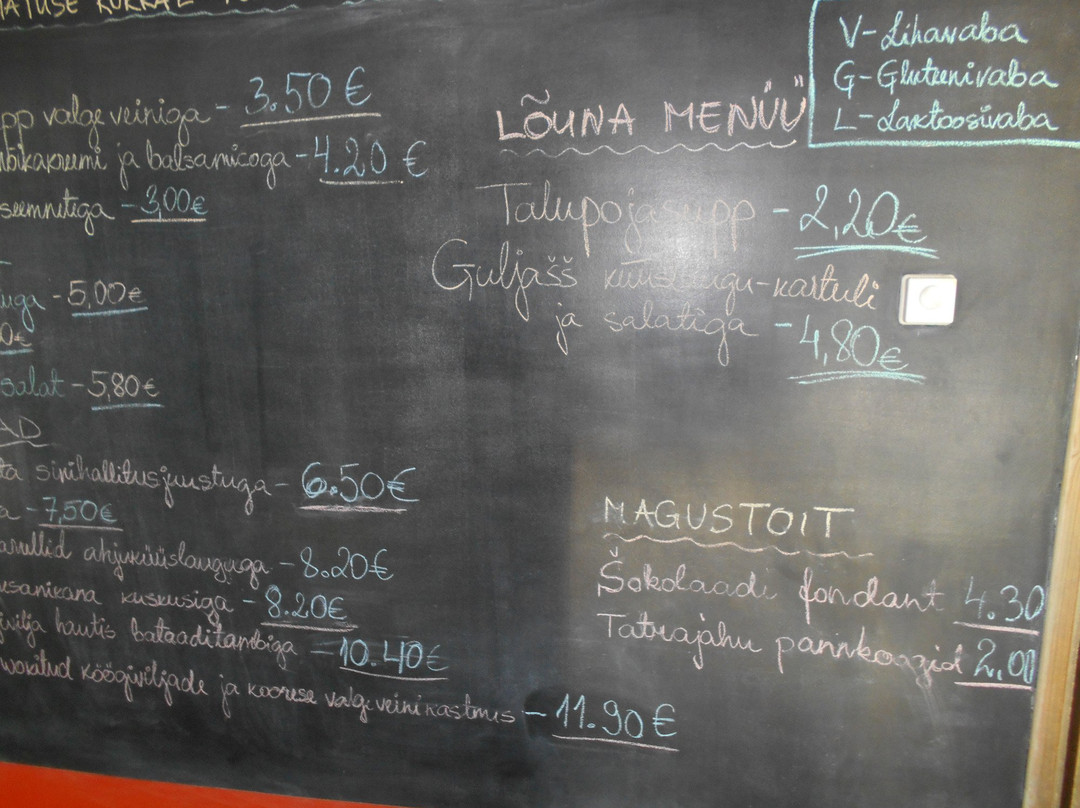 V-Lihavaba
G-Gluteenivaba
L-Laktoosivaba
pp valge veiniga - 3.50 €
ja balsamicoga - 4.20 €
seemnetega - 3,00€
uga - 5,00€
0€
salat - 5,80€
AD
ta sinihallitusjuustuga - 6.50€
a - 7,50€
rullid ahjuküüslauguga - 8.20€
sanikana kuskusiga - 8.20€
hautis bataaditambiga - 10.40€
wokitud köögiviljade ja koorese valgeveinikastmes - 11.90€
LÕUNA MENÜÜ
Talupojasupp - 2,20€
Guljašš küüslaugu-kartuli
ja salatiga - 4,80€
MAGUSTOIT
Šokolaadi fondant 4.30
Tatrajahu pannkoogid 2,00